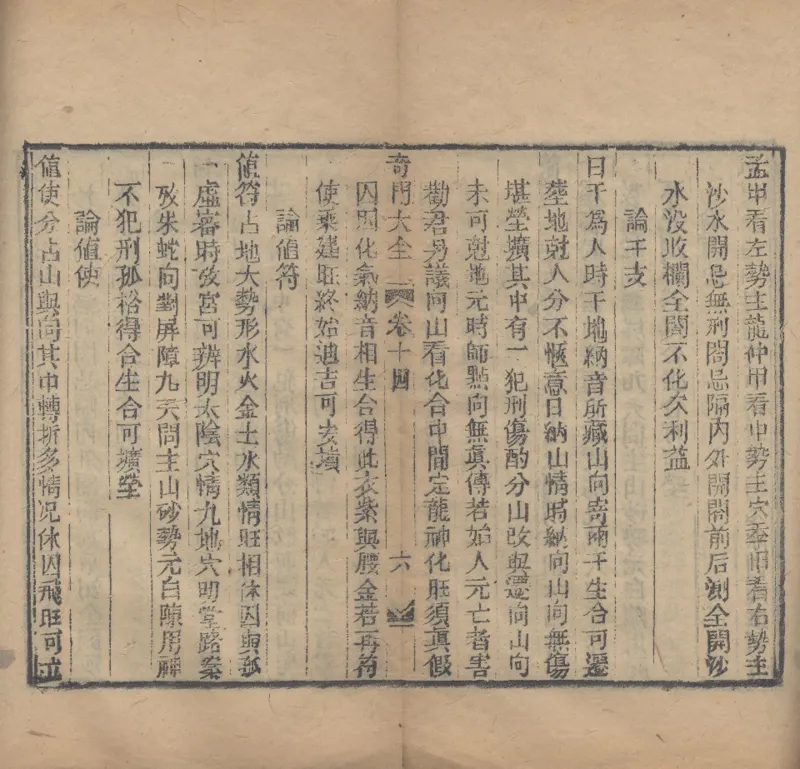 孟甲看左勢主龍仲甲看中勢主穴季甲看右勢主
沙水開忌無刑閤忌隔內外開闔前后測全開沙
水沒收欄全閤不化欠利益
論干支
日干為人時干地納音所藏山向寄兩干生合可遷
塟地尅人分不愜意日納山情時納向山向無傷
堪塋壙其中有一犯刑傷酌分山改與遷向山向
未可尅地元時師㸃向無眞傳若始人元亡者害
勸君另議向山看化合中間定龍神化旺須眞假
奇門大全 卷十四 六
囚因化氣納音相生合得此衣紫與腰金若再符
使乘建旺終始迪吉可安墳
論値符
値符占地大勢形水火金土木類情旺相休囚與孤
虛審時攷宮可辨明太陰穴情九地穴明堂路案
攷朱蛇向對屏障九天問主山砂勢元白隙周神
不犯刑孤格得合生合可壙塋
論値使
値使分占山與向其中轉折多情况休囚飛旺可